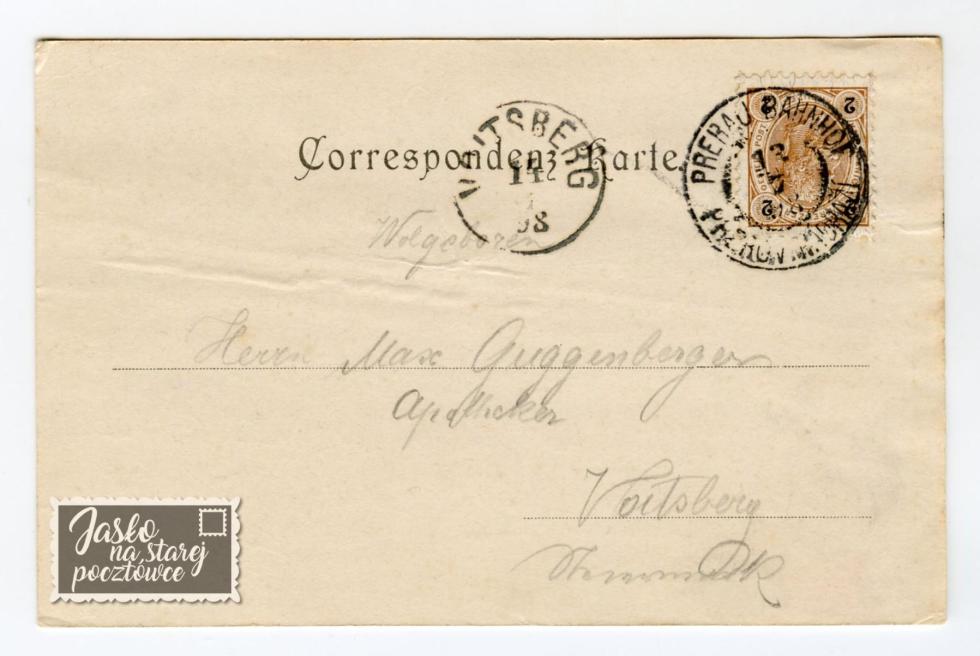 Correspondenz-Karte.
VOITSBERG
14
98
PRERAU BAHNHOF
2
2
2
Wolgeboren
Herrn Max Guggenberger
Apotheker
Voitsberg
Steiermark
Jasło
na starej
pocztówce